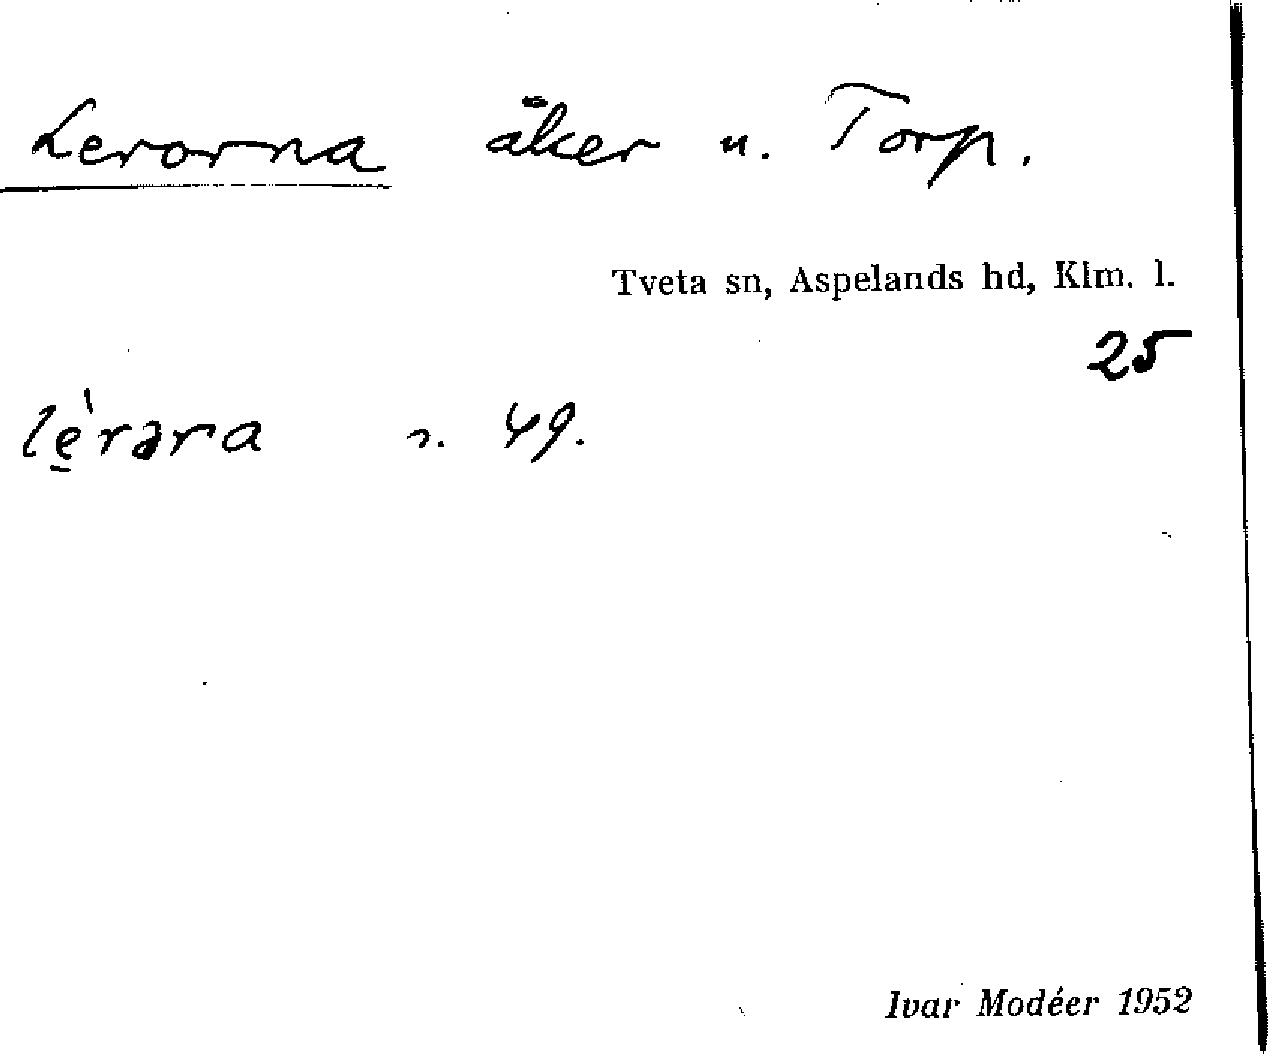 Lerorna åker u. Torp.
Tveta sn, Aspelands hd, Klm. l.
25
lè̱rara s. 49.
Ivar Modéer 1952